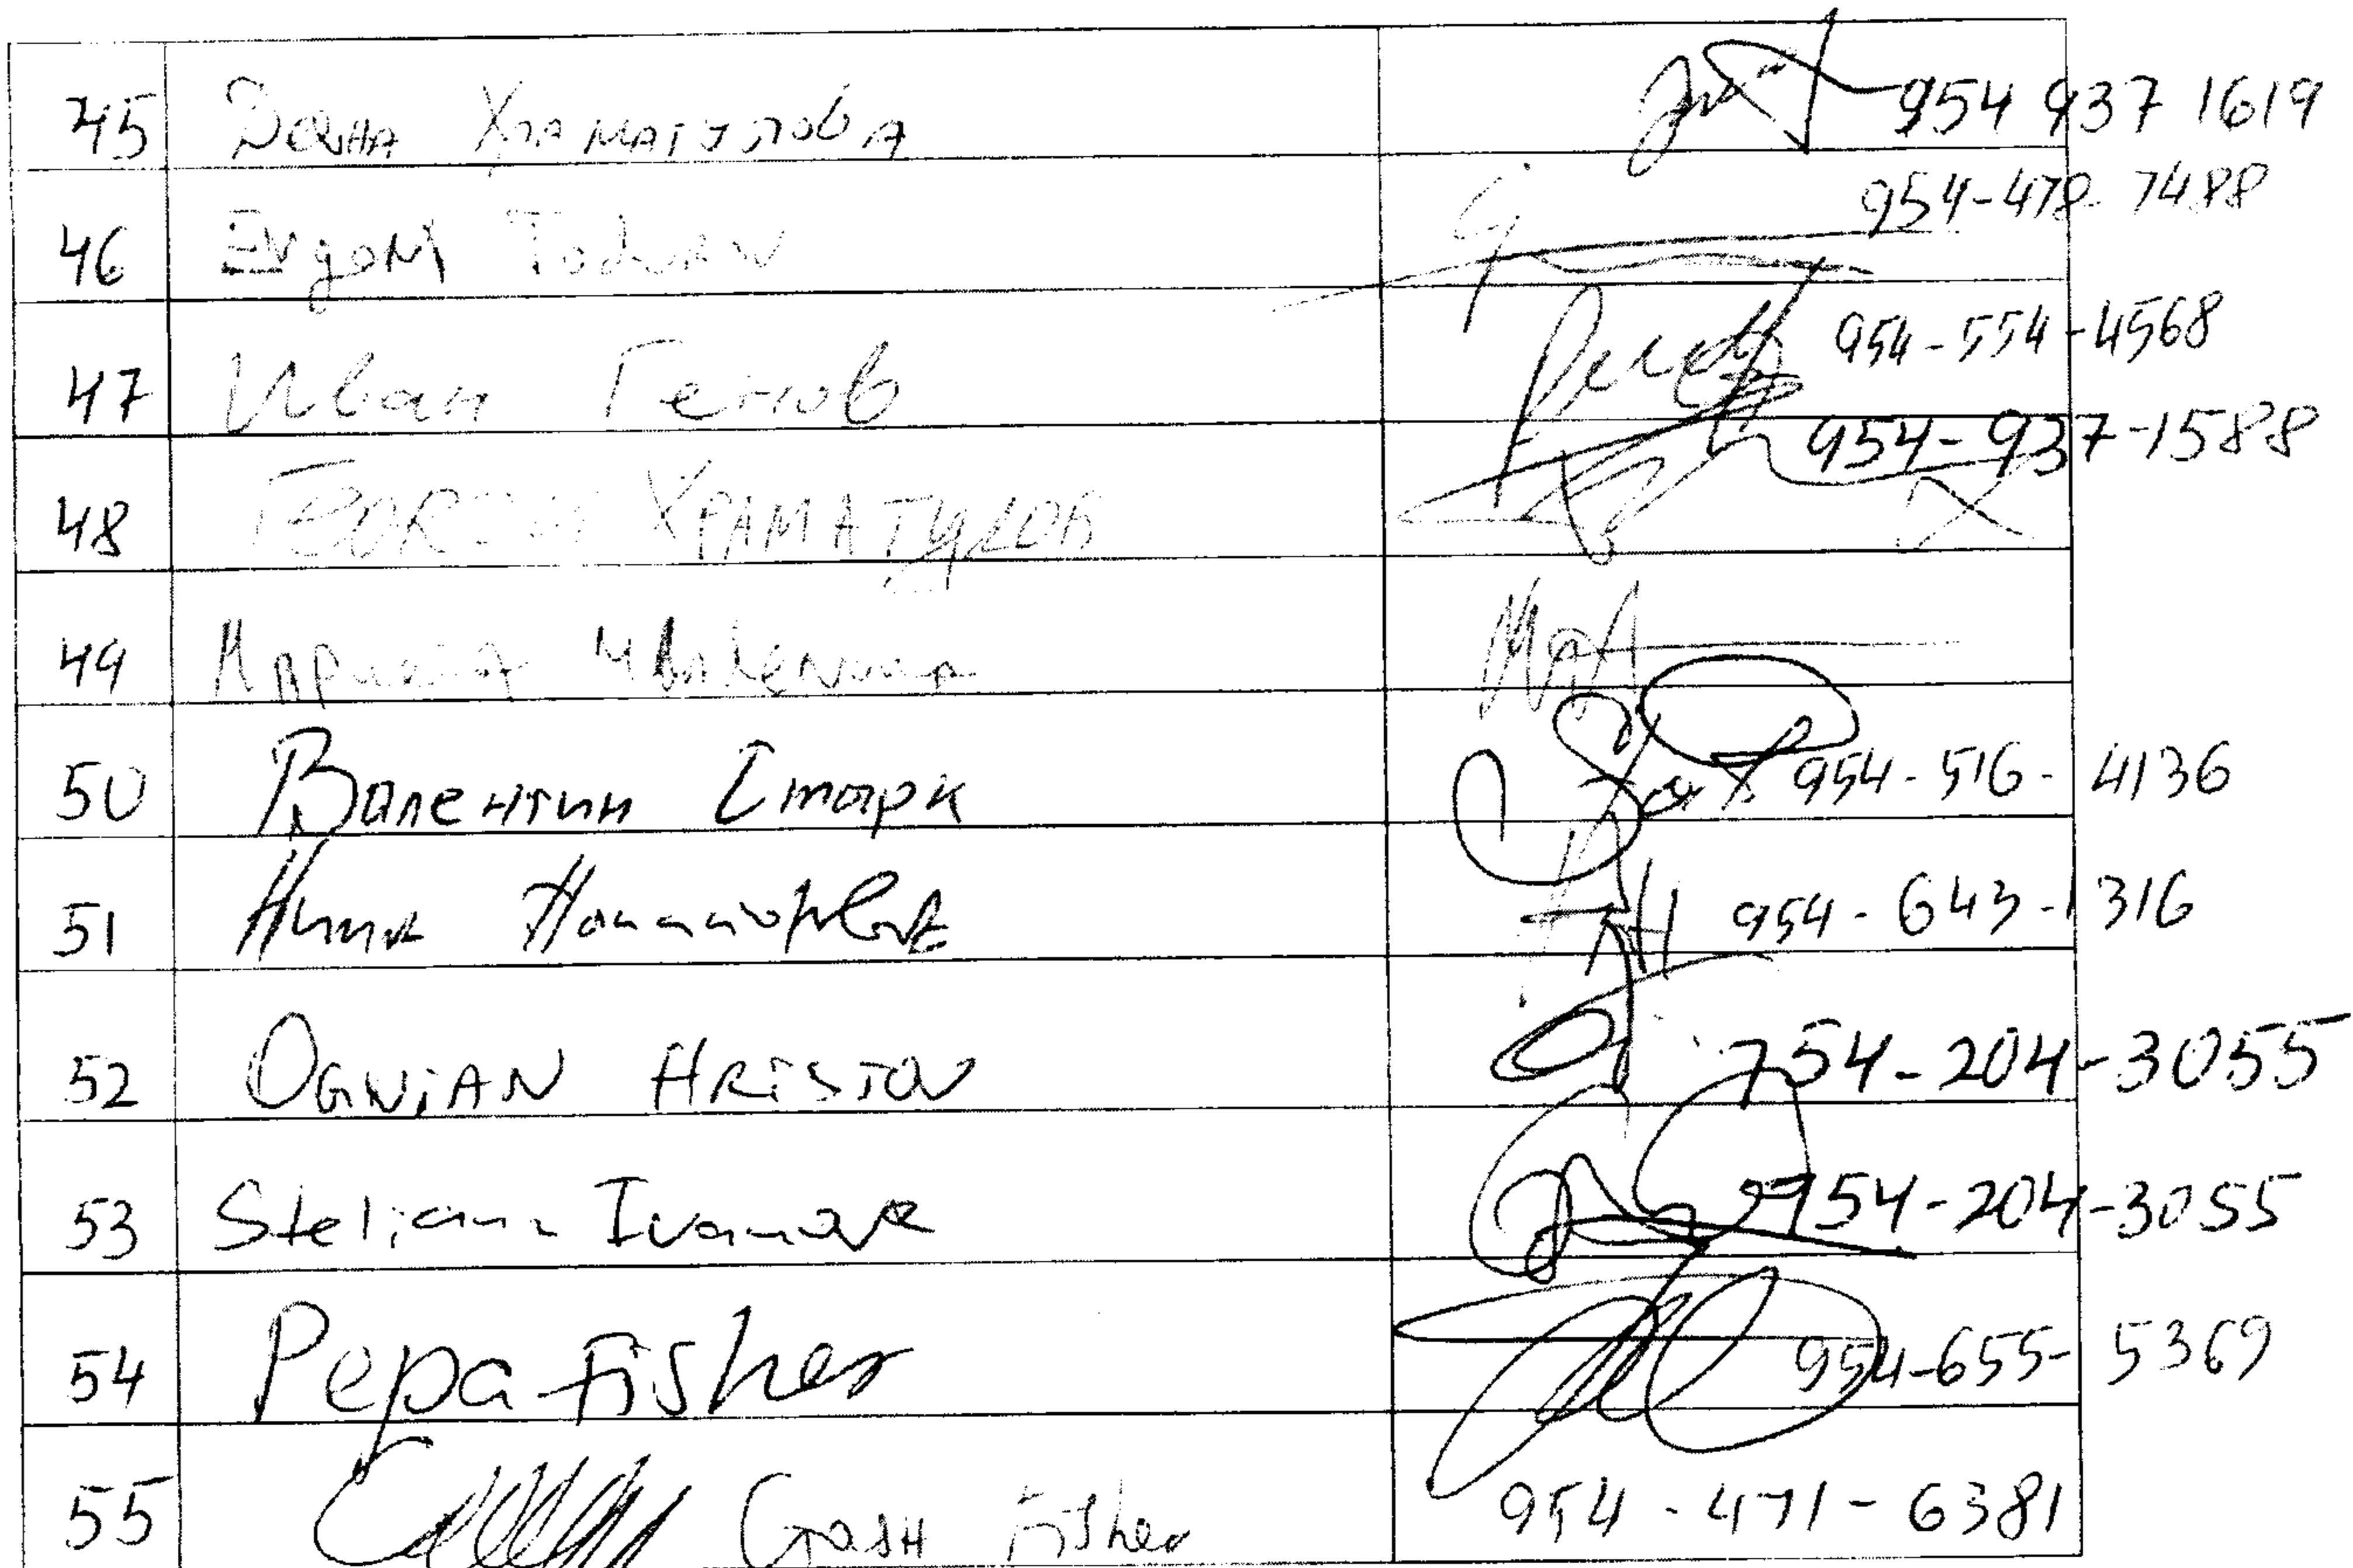 45 Дона Храматулова 954 937 1619
46 Evgeni Todorov 954-478-7488
47 Иван Генов 954-554-4568
48 Храматулов 954-937-1588
49
50 Валентин Старк 954-516-4136
51 954-643-1316
52 OGNiAN HRISTOV 754-204-3055
53 Steliana Ivanova 954-204-3055
54 Pepa Fisher 954-655-5369
55 Fisher 954-471-6381